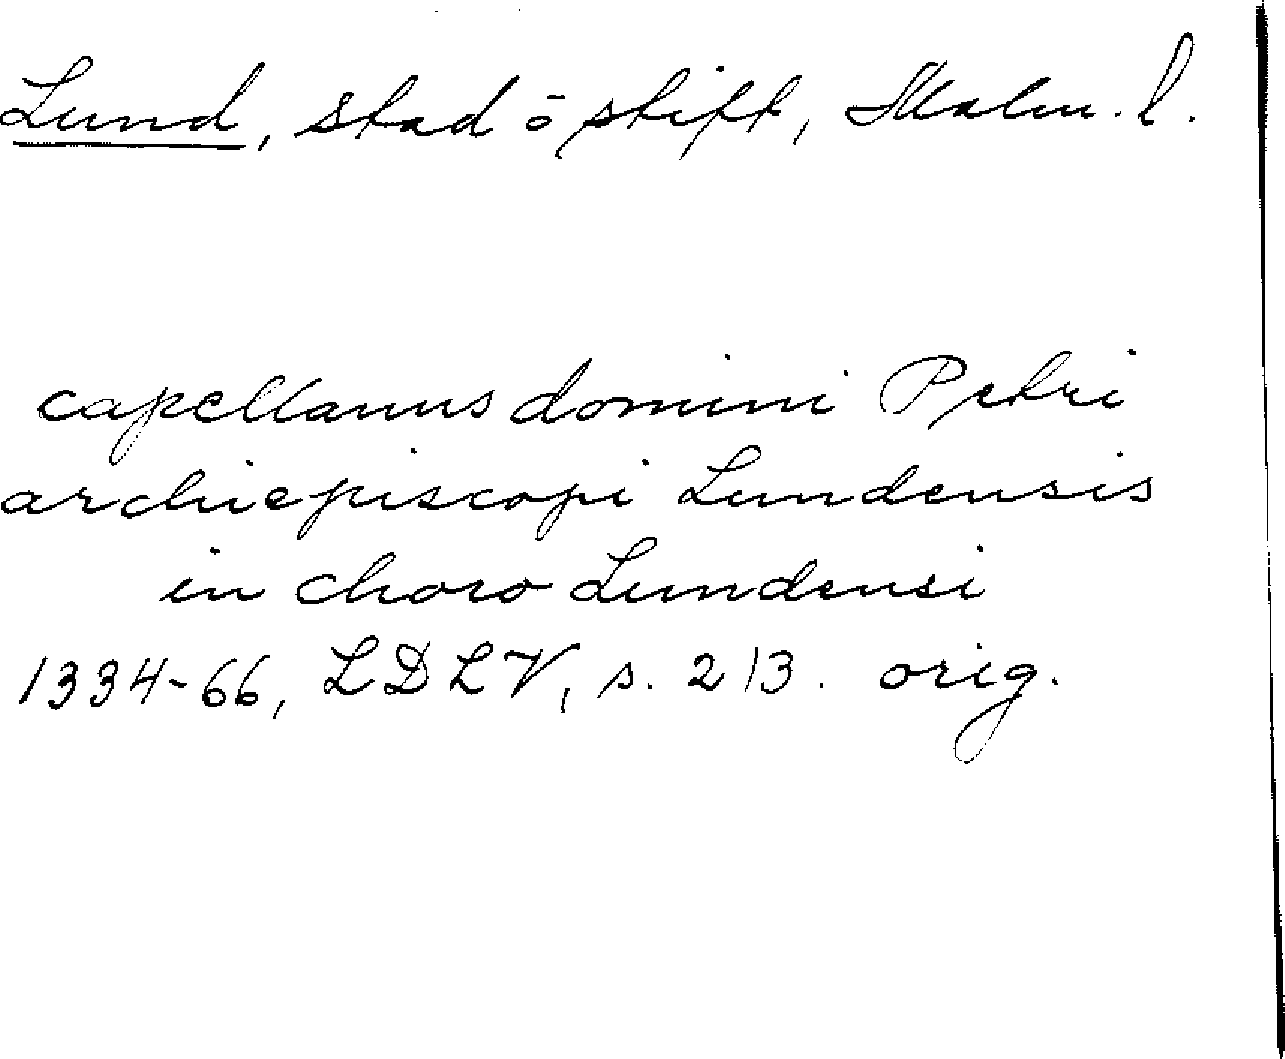 Lund, stad o stift, Malm. l.
capellanus domini Petri
archiepiscopi Lundensis
in choro Lundensi
1334-66, LDLV, s. 213. orig.